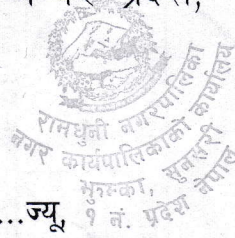 प्रदेश,
रामधुनी नगरपालिका
नगर कार्यपालिकाको कार्यालय
भुल्का, सुनसरी
१ नं. प्रदेश नेपाल
...ज्यू,